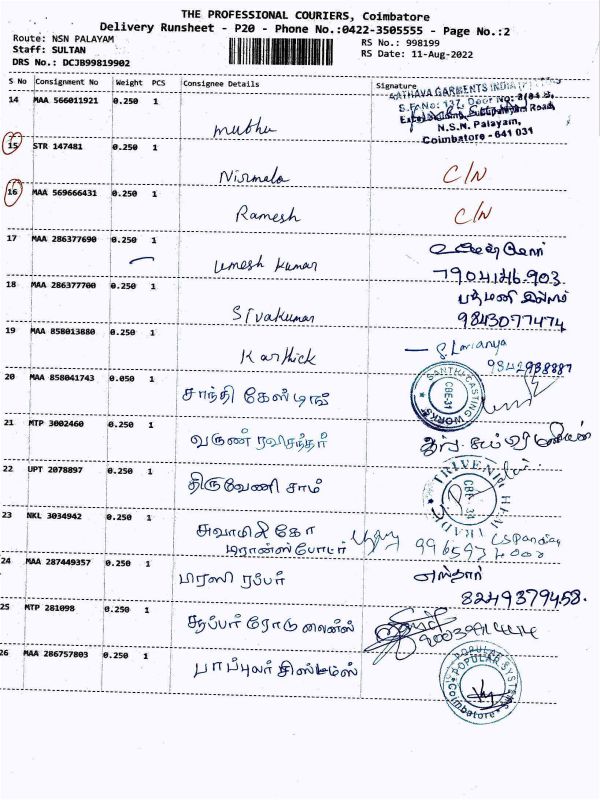 THE PROFESSIONAL COURIERS, Coimbatore
Delivery Runsheet - P20 - Phone No.:0422-3505555 - Page No.:2
Route: NSN PALAYAM
Staff: SULTAN
DRS No.: DCJB99819902
RS No.: 998199
RS Date: 11-Aug-2022
S No Consignment No Weight PCS Consignee Details Signature
14 MAA 566011921 0.250 1 Muthu
GARMENTS INDIA
N.S.N. Palayam,
Coimbatore - 641 031
15 STR 147481 0.250 1 Nirmala C/N
16 MAA 569666431 0.250 1 Ramesh C/N
17 MAA 286377690 0.250 1 Umesh Kumar
18 MAA 286377700 0.250 1 Sivakumar
பத்மணி
9843077474
19 MAA 858013880 0.250 1 Karthick S. Lavanya
20 MAA 858041743 0.050 1 சாந்தி கேஸ்டிங்
SANTHI CASTING WORKS
CBE-31
21 MTP 3002460 0.250 1 வருண்
22 UPT 2078897 0.250 1 திருவேணி சாம்
TRIVENI
23 NKL 3034942 0.250 1 சுவாமி
டிரான்ஸ்போர்ட்
CS Pandiay
24 MAA 287449357 0.250 1 ரப்பர்
8249379458.
25 MTP 281098 0.250 1 சூப்பர் ரோடு லைன்ஸ்
26 MAA 286757803 0.250 1 பாப்புலர் சிஸ்டம்ஸ்
POPULAR SYSTEMS
POPULAR
Coimbatore